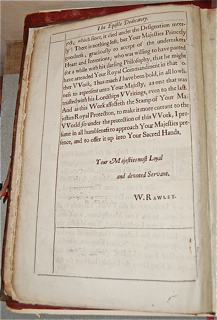 The Epistle Dedicatory.
which since, is cited under the Designation
There is nothing left, but Your Majesties Princely
goodness, graciously to accept of the undertakers
Heart and Intentions; who was willing to have parted
for a while with his darling Philosophy, that he might
have attended Your Royal Commandment in that
ther VVork. Thus much I have been bold, in all
ness to
trusted with his Lordships VVritings, even to the last.
And as this Work affecteth the Stamp of Your Ma-
jesties Royal Protection, to make it more currant to the
VVorld; so under the protection of this VVork, I pre-
sume in all humbleness to approach Your Majesties pre-
sence, and to offer it up into Your Sacred Hands,
Your Majesties most Loyal
and devoted Servant,
W. RAWLEY.